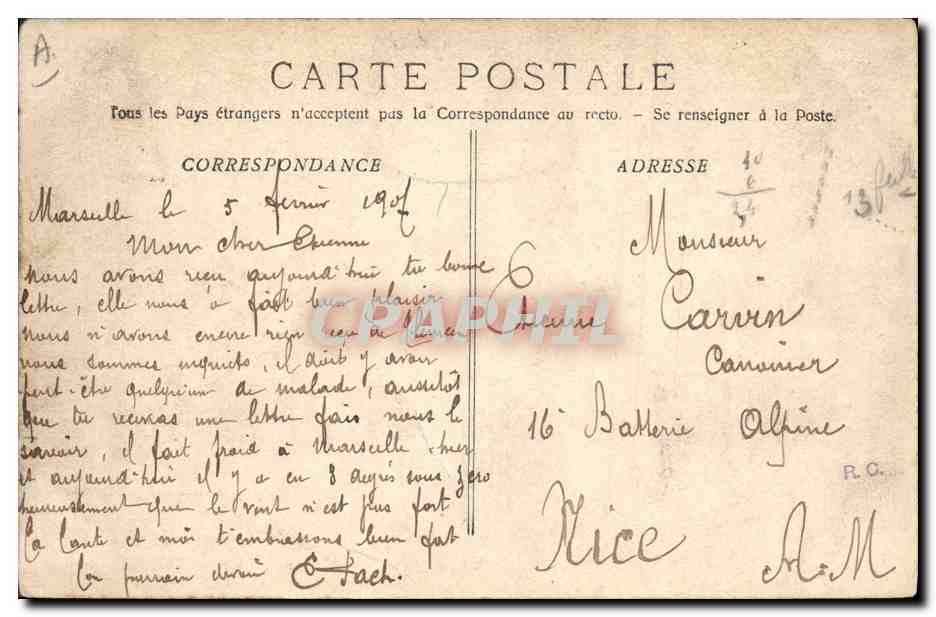 A.
CARTE POSTALE
Tous les Pays étrangers n'acceptent pas la Correspondance au recto. - Se renseigner à la Poste.
CORRESPONDANCE
Marseille le 5 février 1907
Mon cher Etienne
nous avons reçu aujourd'hui ta bonne
lettre, elle nous a fait bien plaisir
nous n'avons encore rien reçu de
nous sommes inquiets, il doit y avoir
peut-être quelqu'un de malade, aussitôt
que tu recevras une lettre fais nous le
savoir, il fait froid à Marseille hier
et aujourd'hui il y a eu 8 degrés sous zero
heureusement que le vent n'est pas fort
ta tante et moi t'embrassons bien fort
ton parrain
ADRESSE
13
Monsieur
Etienne Carvin
Canonier
16e Batterie Alpine
R. C.
Nice
A-M
CPAPHIL